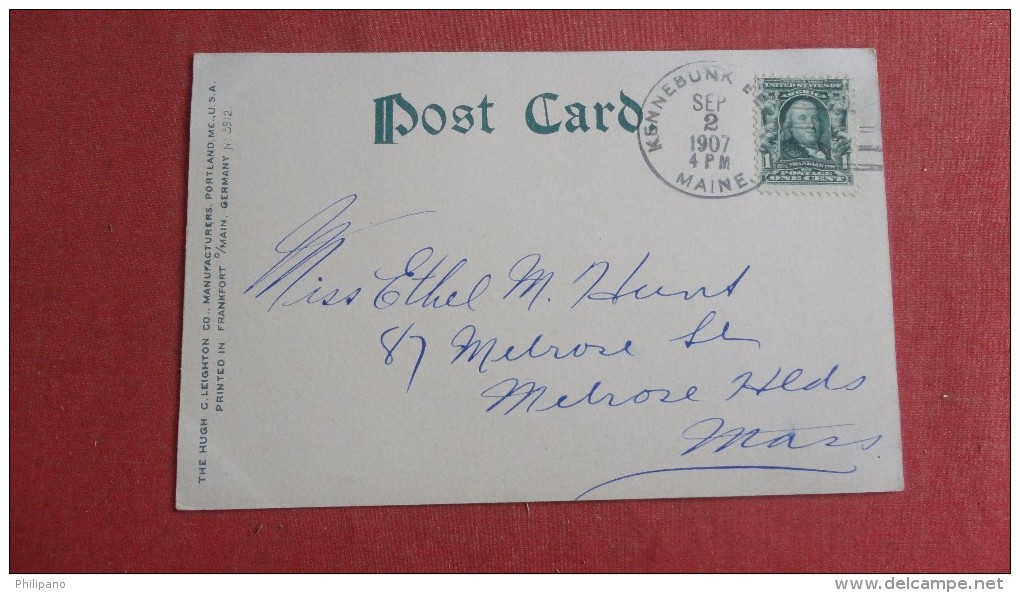 Post Card
KENNEBUNK
SEP
2
1907
4 PM
MAINE.
UNITED STATES OF
AMERICA
1 1
FRANKLIN
POSTAGE
ONE CENT
Miss Ethel M. Hunt
87 Melrose St
Melrose Hlds
Mass.
THE HUGH C. LEIGHTON CO., MANUFACTURERS, PORTLAND, ME., U.S.A.
PRINTED IN FRANKFORT O/MAIN, GERMANY No 3912
Philipano
www.delcampe.net